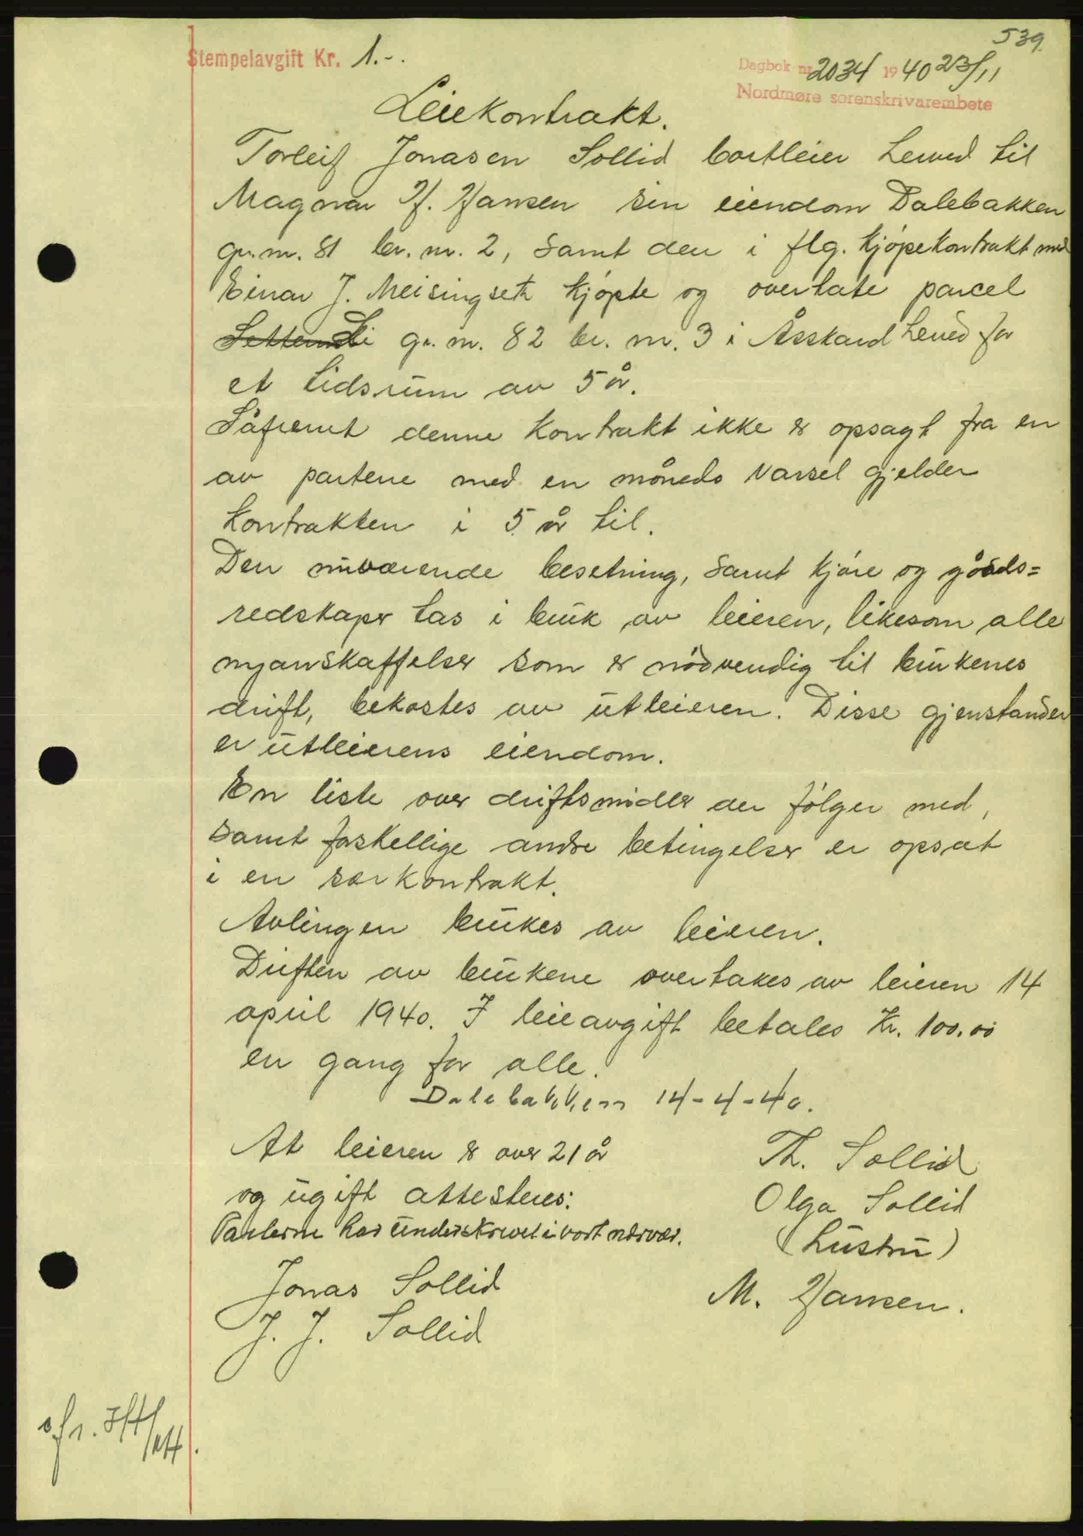 539.
Stempelavgift Kr. 1.-.
Dagbok nr. 2034 1940 23/11
Nordmøre sorenskrivarembete
Leiekontrakt.
Torleif Jonasen Sollid bortleier herved til
Magnar H. Hansen sin eiendom Dalebakken
gr. nr. 81 br. nr. 2, samt den i flg. kjøpekontrakt med
Einar J. Meisingseth kjøpte og overtate parcel
gr. nr. 82 br. nr. 3 i Åsskard herved for
et tidsrum av 5 år.
Såfremt denne kontrakt ikke er opsagt fra en
av partene med en måneds varsel gjelder
kontrakten i 5 år til.
Den nuværende besetning, samt kjøre og gårds=
redskaper tas i bruk av leieren, likesom alle
nyanskaffelser som er nødvendig til brukenes
drift, bekostes av utleieren. Disse gjenstander
er utleierens eiendom.
En liste over driftsmidler der følger med,
samt forskellige andre betingelser er opsat
i en særkontrakt.
Avlingen brukes av leieren.
Driften av brukene overtakes av leieren 14
april 1940. I leieavgift betales Kr. 100.00
en gang for alle.
Dalebakken 14-4-40.
At leieren er over 21 år
og ugift attesteres:
Parterne har underskrevet i vort nærvær.
Jonas Sollid
J. J. Sollid
Th. Sollid
Olga Sollid
(hustru)
M. Hansen.